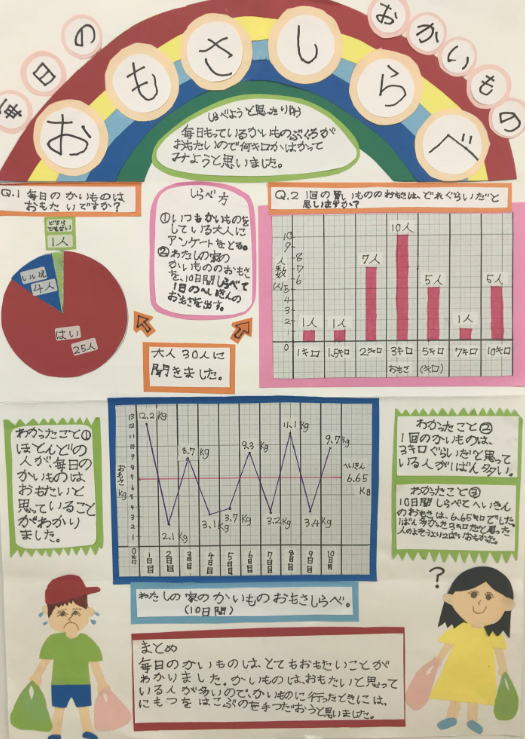 毎日の
おかいもの
おもさしらべ
しらべようと思ったり由
毎日もっているかいものぶくろが
おもたいので何キロかはかって
みようと思いました。
Q.1 毎日のかいものは
おもたいですか?
1人
いいえ
4人
はい
25人
しらべ方
①いつもかいものを
している大人に
アンケートをとる。
②わたしの家の
かいもののおもさ
を、10日間しらべて
1日のへいきんの
おもさを出す。
大人30人に
聞きました。
Q.2 1回の買いもののおもさは、どれぐらいだと
思いますか?
人数(人)
1人
1人
7人
10人
5人
1人
5人
1キロ
1.5キロ
2キロ
3キロ
5キロ
7キロ
10キロ
おもさ (キロ)
わかったこと①
ほとんどの
人が、毎日の
かいものは、
おもたいと
思っていること
がわかり
ました。
おもさ
kg
12.2 kg
2.1 kg
8.7 kg
3.1 kg
3.7 kg
9.3 kg
3.2 kg
11.1 kg
3.4 kg
9.7 kg
へいきん
6.65
kg
1日目
2日目
3日目
4日目
5日目
6日目
7日目
8日目
9日目
10日目
わたしの家のかいものおもさしらべ。
(10日間)
わかったこと②
1回のかいものは、
3キロぐらいだと思って
いる人がいちばん多い。
わかったこと③
10日間しらべてへいきん
のおもさは、6.65キロでした。
いちばん多かった3キロだと思った
人のよそうより2ばいおもたい。
?
まとめ
毎日のかいものは、とてもおもたいことが
わかりました。かいものは、おもたいと思って
いる人が多いので、かいものに行ったときには、
にもつをはこぶのを手つだおうと思いました。